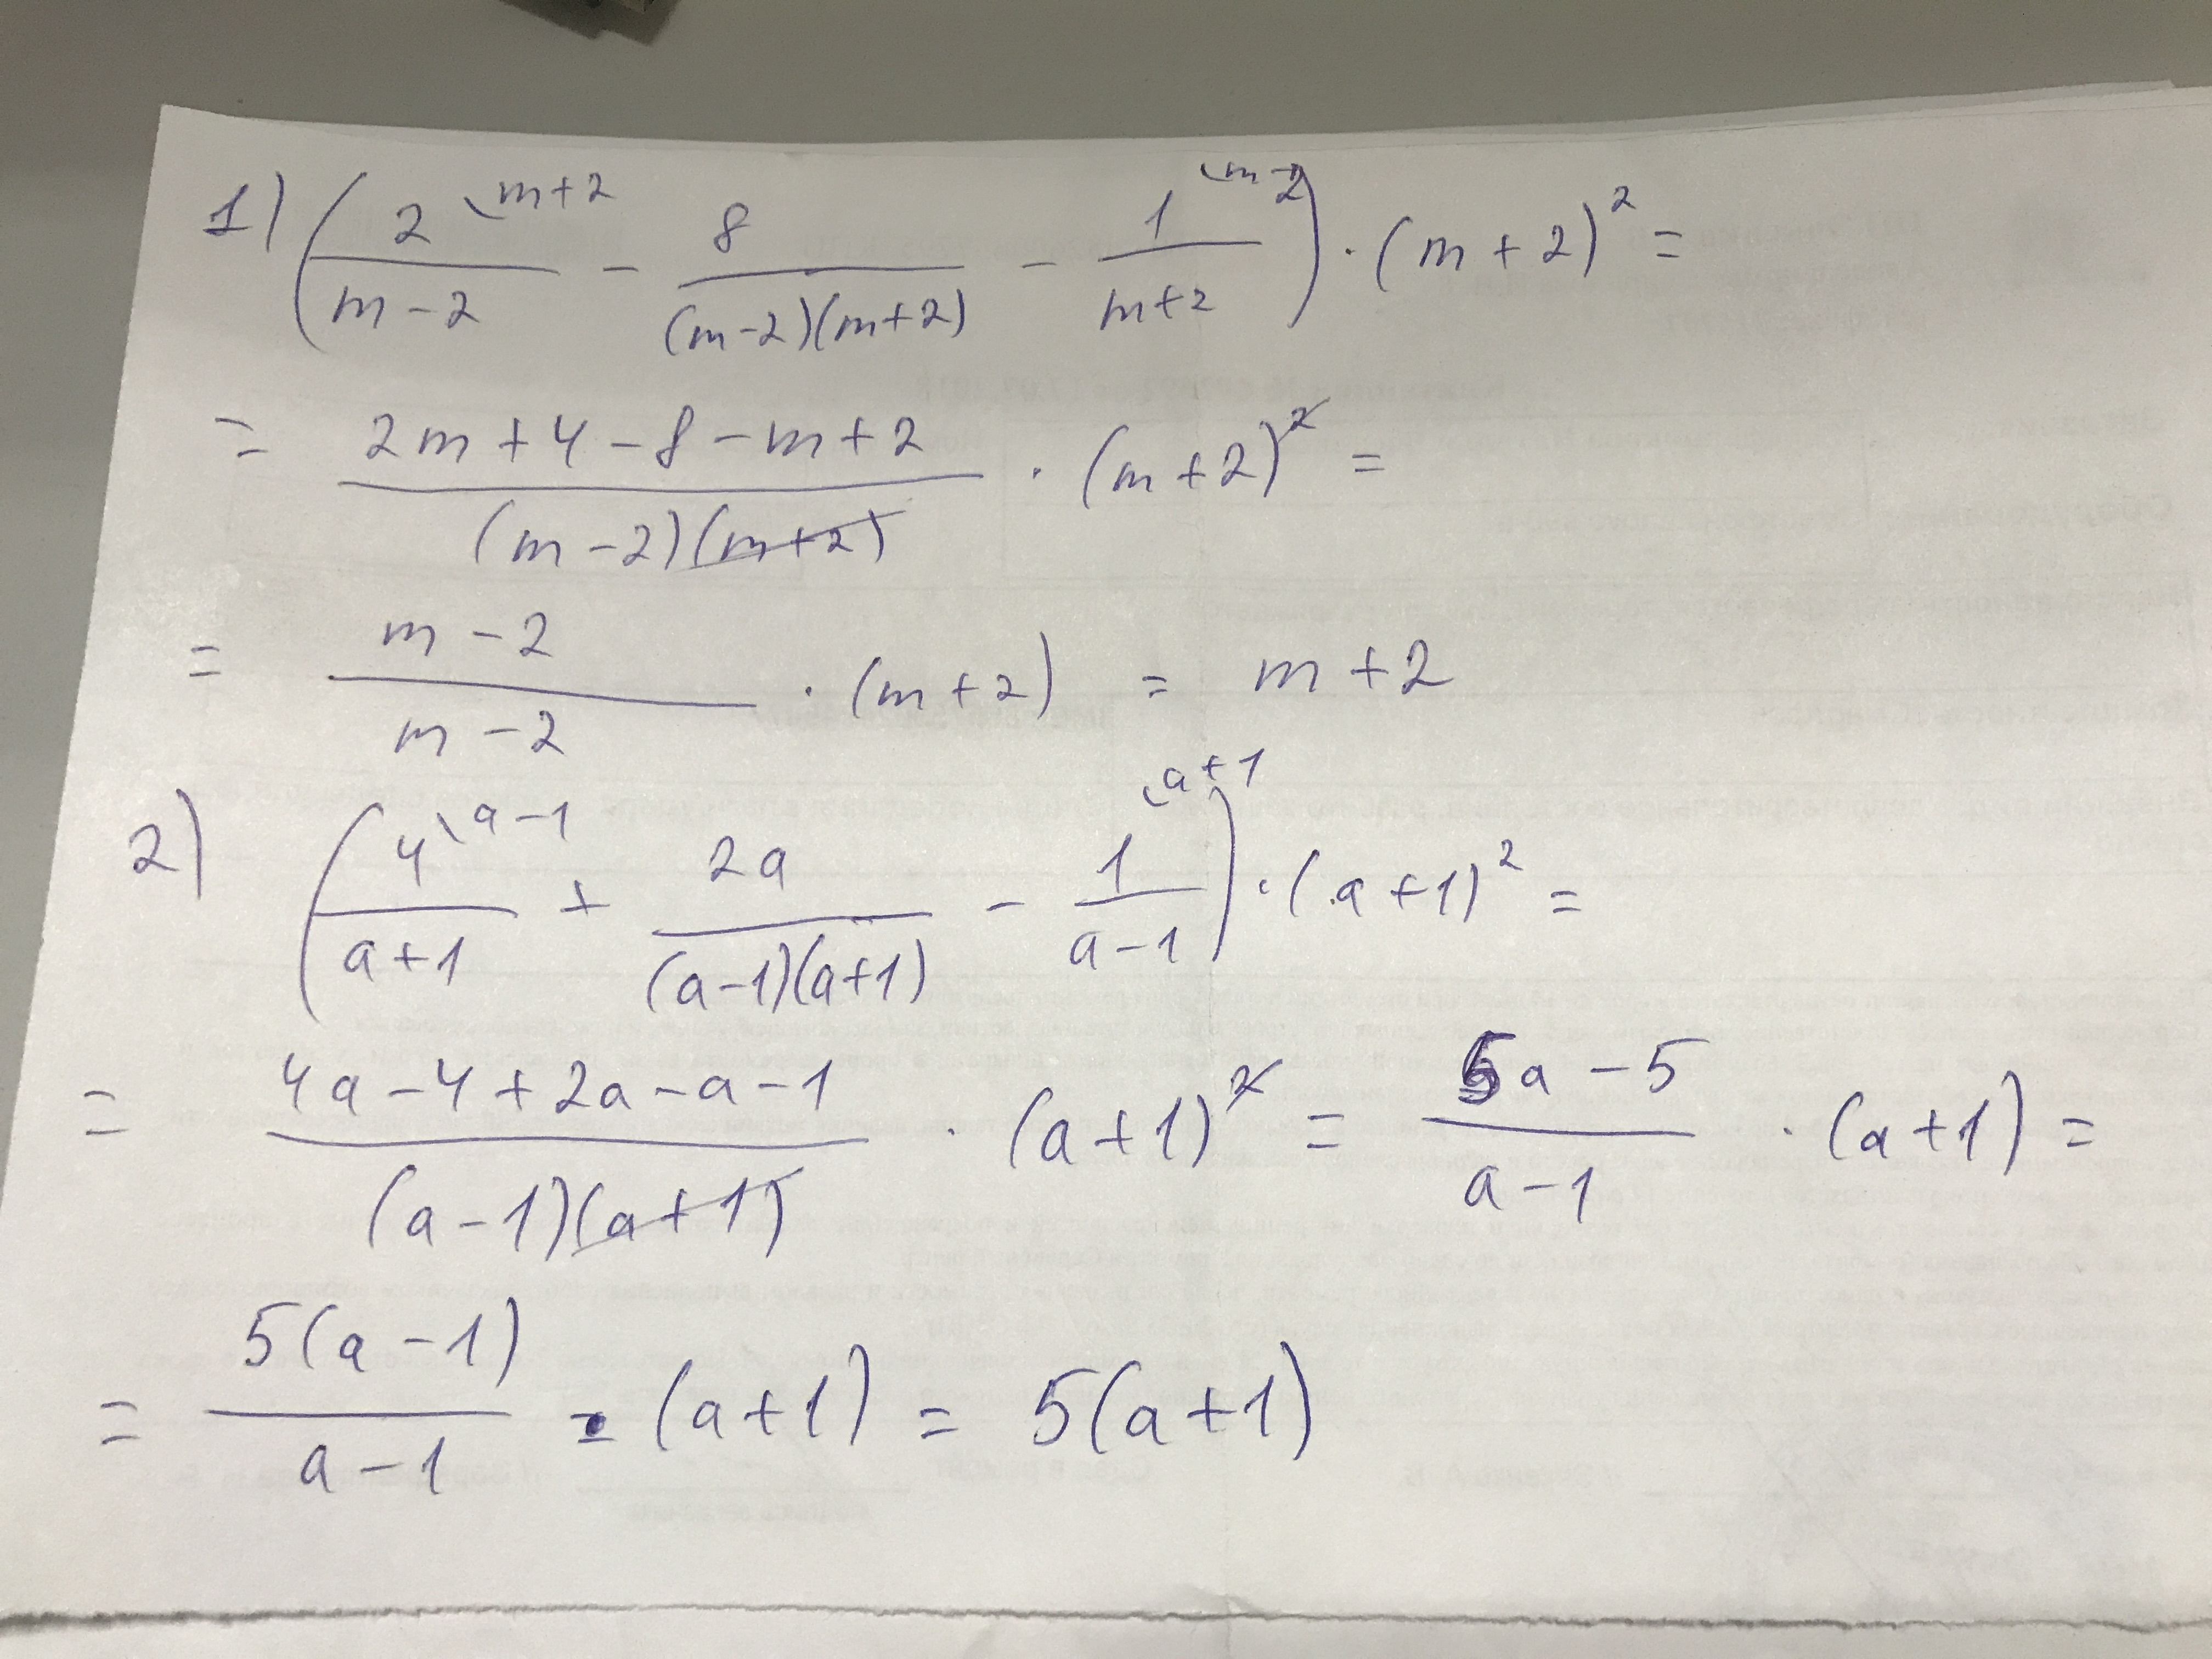 1) (2^{\m+2}/(m-2) - 8/((m-2)(m+2)) - 1^{\m-2}/(m+2)) · (m+2)^2 =
= (2m+4-8-m+2)/((m-2)(m+2)) · (m+2)^2 =
= (m-2)/(m-2) · (m+2) = m+2
2) (4^{\a-1}/(a+1) + 2a/((a-1)(a+1)) - 1^{\a+1}/(a-1)) · (a+1)^2 =
= (4a-4+2a-a-1)/((a-1)(a+1)) · (a+1)^2 = (5a-5)/(a-1) · (a+1) =
= 5(a-1)/(a-1) · (a+1) = 5(a+1)